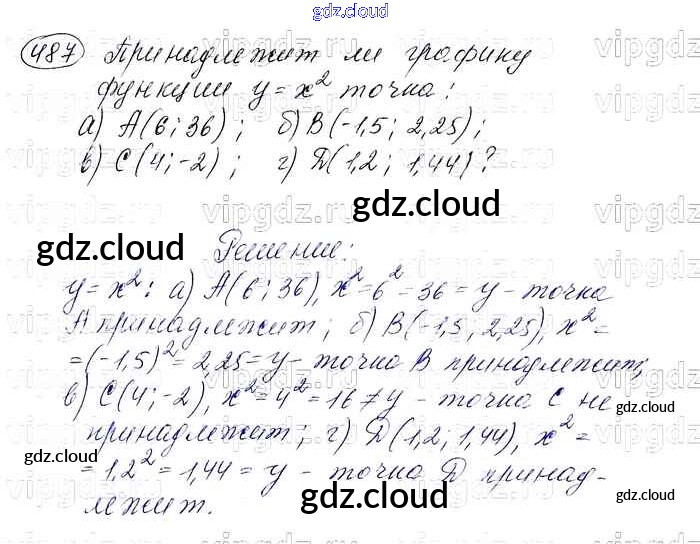 gdz.cloud
487 Принадлежит ли графику
функции y = x² точка:
а) A(6; 36); б) B(-1,5; 2,25);
в) C(4; -2); г) D(1,2; 1,44)?
gdz.cloud
gdz.cloud
Решение:
y = x²: а) A(6; 36), x² = 6² = 36 = y - точка
A принадлежит; б) B(-1,5; 2,25), x² =
= (-1,5)² = 2,25 = y - точка B принадлежит;
в) C(4; -2), x² = 4² = 16 ≠ y - точка C не
gdz.cloud
принадлежит; г) D(1,2; 1,44), x² =
gdz.cloud
= 1,2² = 1,44 = y - точка D принад-
gdz.cloud
gdz.cloud
лежит.